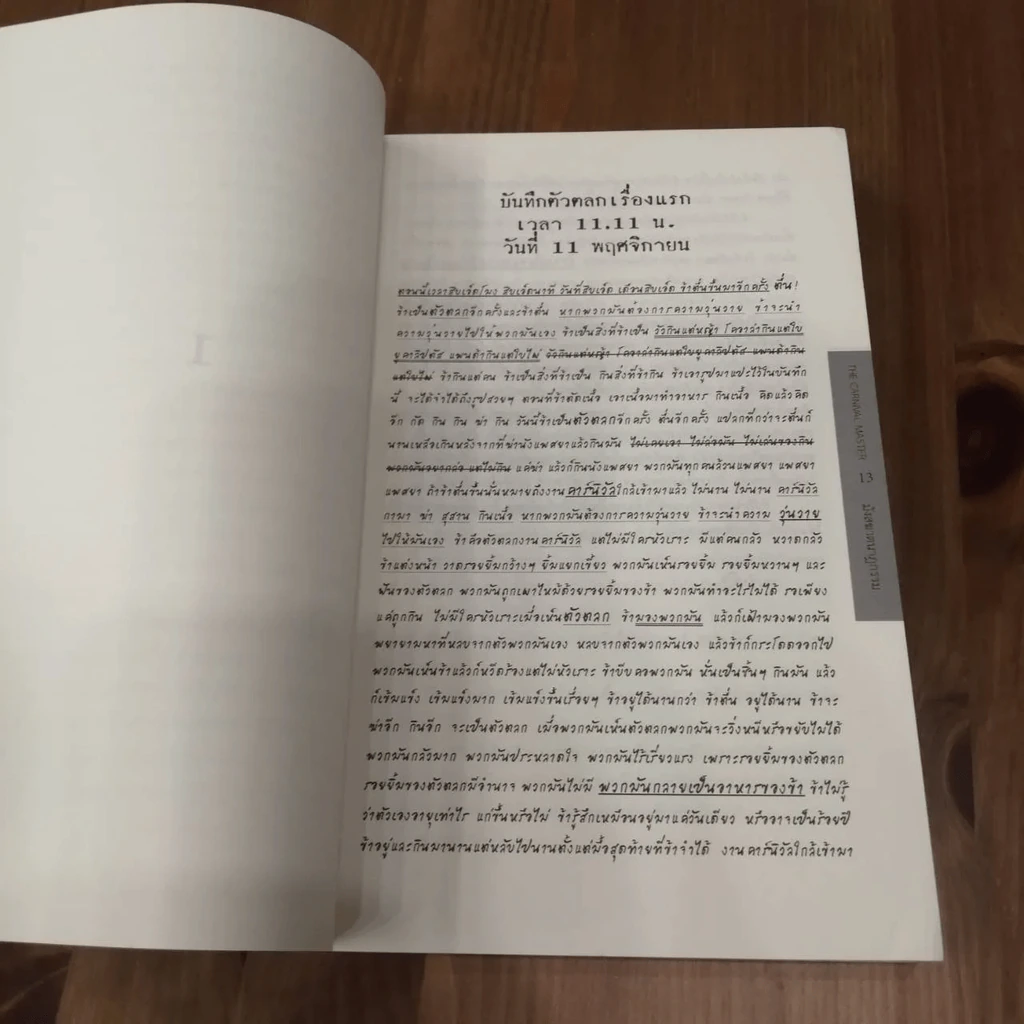 I
บันทึกตัวตลกเรื่องแรก
เวลา 11.11 น.
วันที่ 11 พฤศจิกายน
ตอนนี้เวลาสิบเอ็ดโมง สิบเอ็ดนาที วันที่สิบเอ็ด เดือนสิบเอ็ด ข้าตื่นขึ้นมาอีกครั้ง ตื่น!
ข้าเป็นตัวตลกอีกครั้งและข้าตื่น หากพวกมันต้องการความวุ่นวาย ข้าจะนำ
ความวุ่นวายไปให้พวกมันเอง ข้าเป็นสิ่งที่ข้าเป็น วัวกินแต่หญ้า โคอาล่ากินแต่ใบ
ยูคาริปตัส แพนด้ากินแต่ใบไผ่ วัวกินแต่หญ้า โคอาล่ากินแต่ใบยูคาริปตัส แพนด้ากิน
แต่ใบไผ่ ข้ากินแต่คน ข้าเป็นสิ่งที่ข้าเป็น กินสิ่งที่ข้ากิน ข้าเอารูปมาแปะไว้ในบันทึก
นี้ จะได้จำได้ถึงรูปสวยๆ ตอนที่ข้าตัดเนื้อ เอาเนื้อมาทำอาหาร กินเนื้อ คิดแล้วคิด
อีก กัด กิน กิน ฆ่า กิน วันนี้ข้าเป็นตัวตลกอีกครั้ง ตื่นอีกครั้ง แปลกที่กว่าจะตื่นก็
นานเหลือเกินหลังจากที่ฆ่านังแพศยาแล้วกินมัน ไม่เคยเอา ไม่ล่อมัน ไม่เล่นของกิน
พวกมันอยากล่อ แต่ไม่กิน แค่ฆ่า แล้วก็กินนังแพศยา พวกมันทุกคนล้วนแพศยา แพศยา
แพศยา ถ้าข้าตื่นขึ้นนั่นหมายถึงงานคาร์นิวัลใกล้เข้ามาแล้ว ไม่นาน ไม่นาน คาร์นิวัล
กามา ฆ่า สุสาน กินเนื้อ หากพวกมันต้องการความวุ่นวาย ข้าจะนำความ วุ่นวาย
ไปให้มันเอง ข้าคือตัวตลกงานคาร์นิวัล แต่ไม่มีใครหัวเราะ มีแต่คนกลัว หวาดกลัว
ข้าแต่งหน้า วาดรอยยิ้มกว้างๆ ยิ้มแยกเขี้ยว พวกมันเห็นรอยยิ้ม รอยยิ้มหวานๆ และ
ฟันของตัวตลก พวกมันถูกเผาไหม้ด้วยรอยยิ้มของข้า พวกมันทำอะไรไม่ได้ รอเพียง
แค่ถูกกิน ไม่มีใครหัวเราะเมื่อเห็นตัวตลก ข้ามองพวกมัน แล้วก็เฝ้ามองพวกมัน
พยายามหาที่หลบจากตัวพวกมันเอง หลบจากตัวพวกมันเอง แล้วข้าก็กระโดดออกไป
พวกมันเห็นข้าแล้วก็หวีดร้องแต่ไม่หัวเราะ ข้าบีบคอพวกมัน หั่นเป็นชิ้นๆ กินมัน แล้ว
ก็เข้มแข็ง เข้มแข็งมาก เข้มแข็งขึ้นเรื่อยๆ ข้าอยู่ได้นานกว่า ข้าตื่น อยู่ได้นาน ข้าจะ
ฆ่าอีก กินอีก จะเป็นตัวตลก เมื่อพวกมันเห็นตัวตลกพวกมันจะวิ่งหนีหรือขยับไม่ได้
พวกมันกลัวมาก พวกมันประหลาดใจ พวกมันไร้เรี่ยวแรง เพราะรอยยิ้มของตัวตลก
รอยยิ้มของตัวตลกมีอำนาจ พวกมันไม่มี พวกมันกลายเป็นอาหารของข้า ข้าไม่รู้
ว่าตัวเองอายุเท่าไร แก่ขึ้นหรือไม่ ข้ารู้สึกเหมือนอยู่มาแค่วันเดียว หรืออาจเป็นร้อยปี
ข้าอยู่และกินมานานแต่หลับไปนานตั้งแต่มื้อสุดท้ายที่ข้าจำได้ งานคาร์นิวัลใกล้เข้ามา
THE CARNIVAL MASTER
13